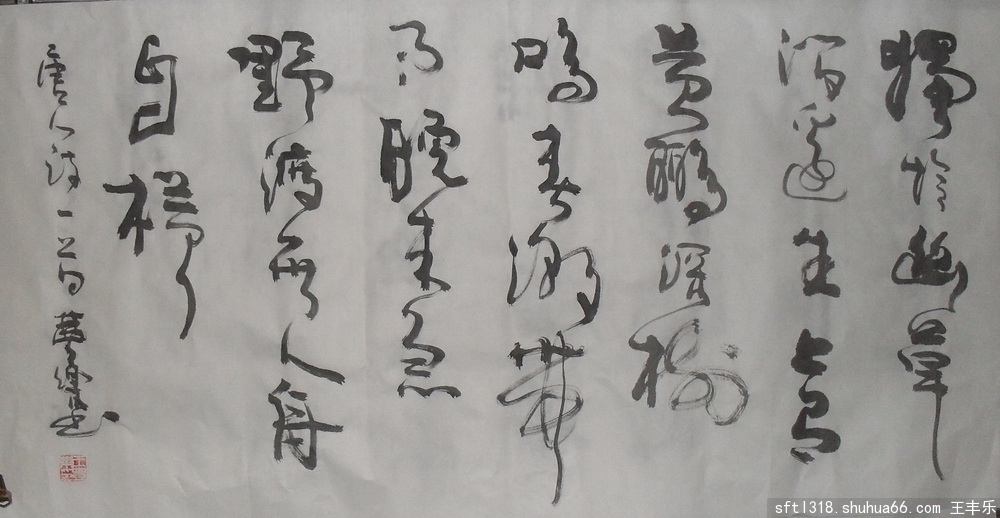 獨怜幽草
澗邊生上有
黄鸝深樹
鳴春潮帶
雨晚来急
野渡無人舟
自横
唐人诗一首 書
sftl318.shuhua66.com 王丰乐